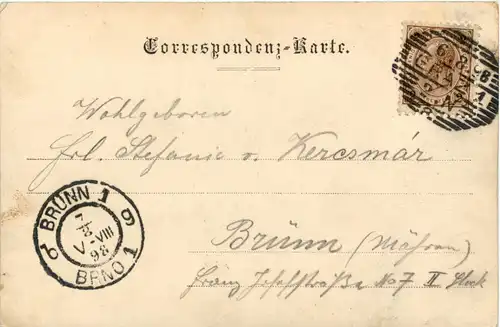 Correspondenz-Karte.
Wohlgeboren
Frl. Stefanie v. Kercsmár
Brünn (Mähren)
Franz Josefstraße No 7 II Stock
BRÜNN 1
7/8
V-VIII
98
BRNO 1